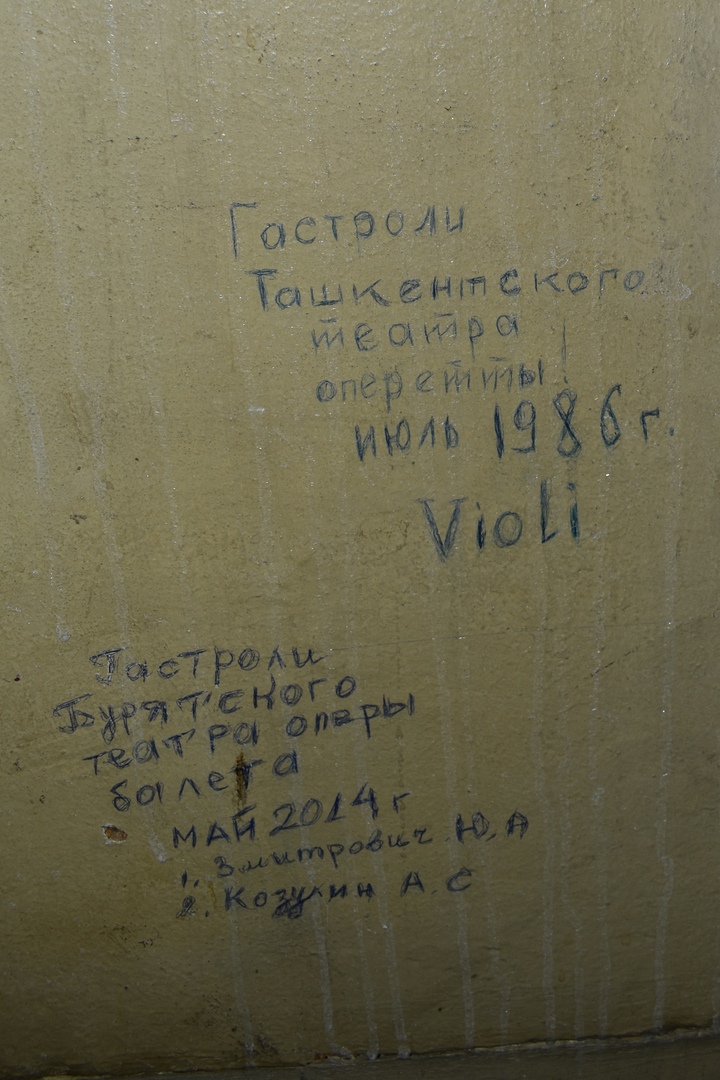 Гастроли
Ташкентского
театра
оперетты!
июль 1986 г.
Violi
Гастроли
Бурятского
театра оперы
балета
МАЙ 2014 г
1. Змитрович Ю.А
2. Козулин А.С